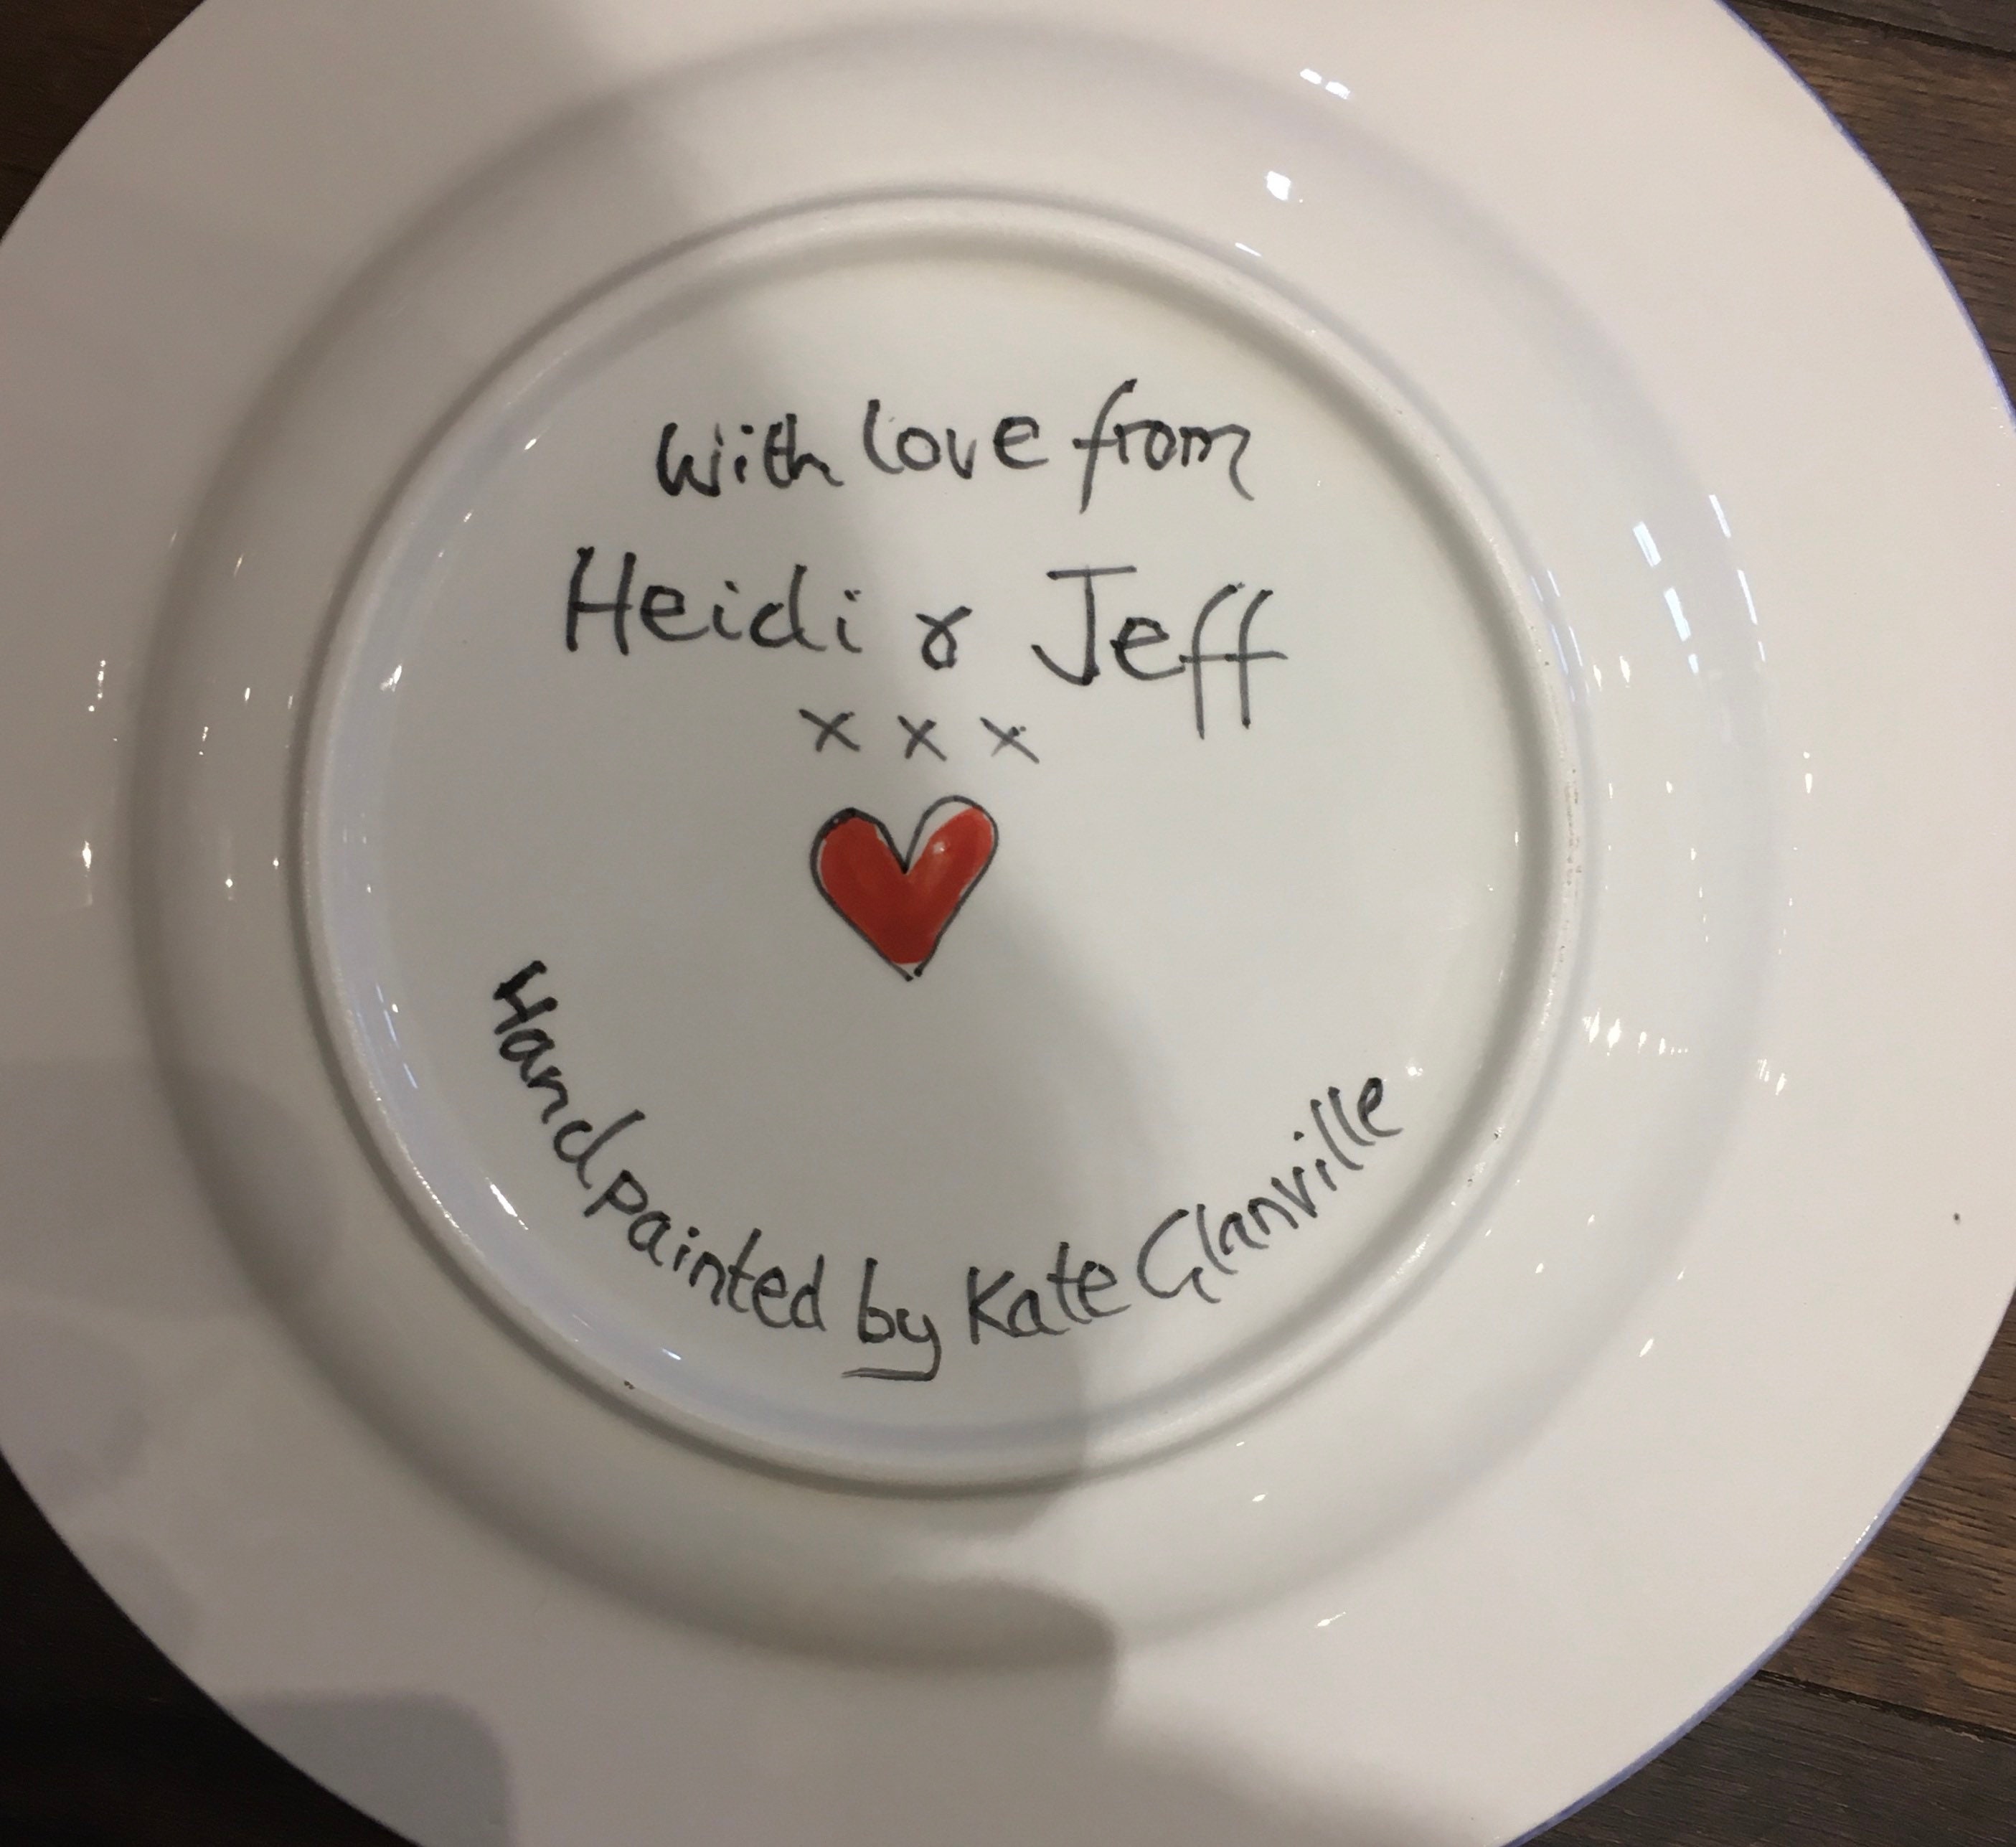 with love from
Heidi & Jeff
x x x
Hand painted by Kate Glanville